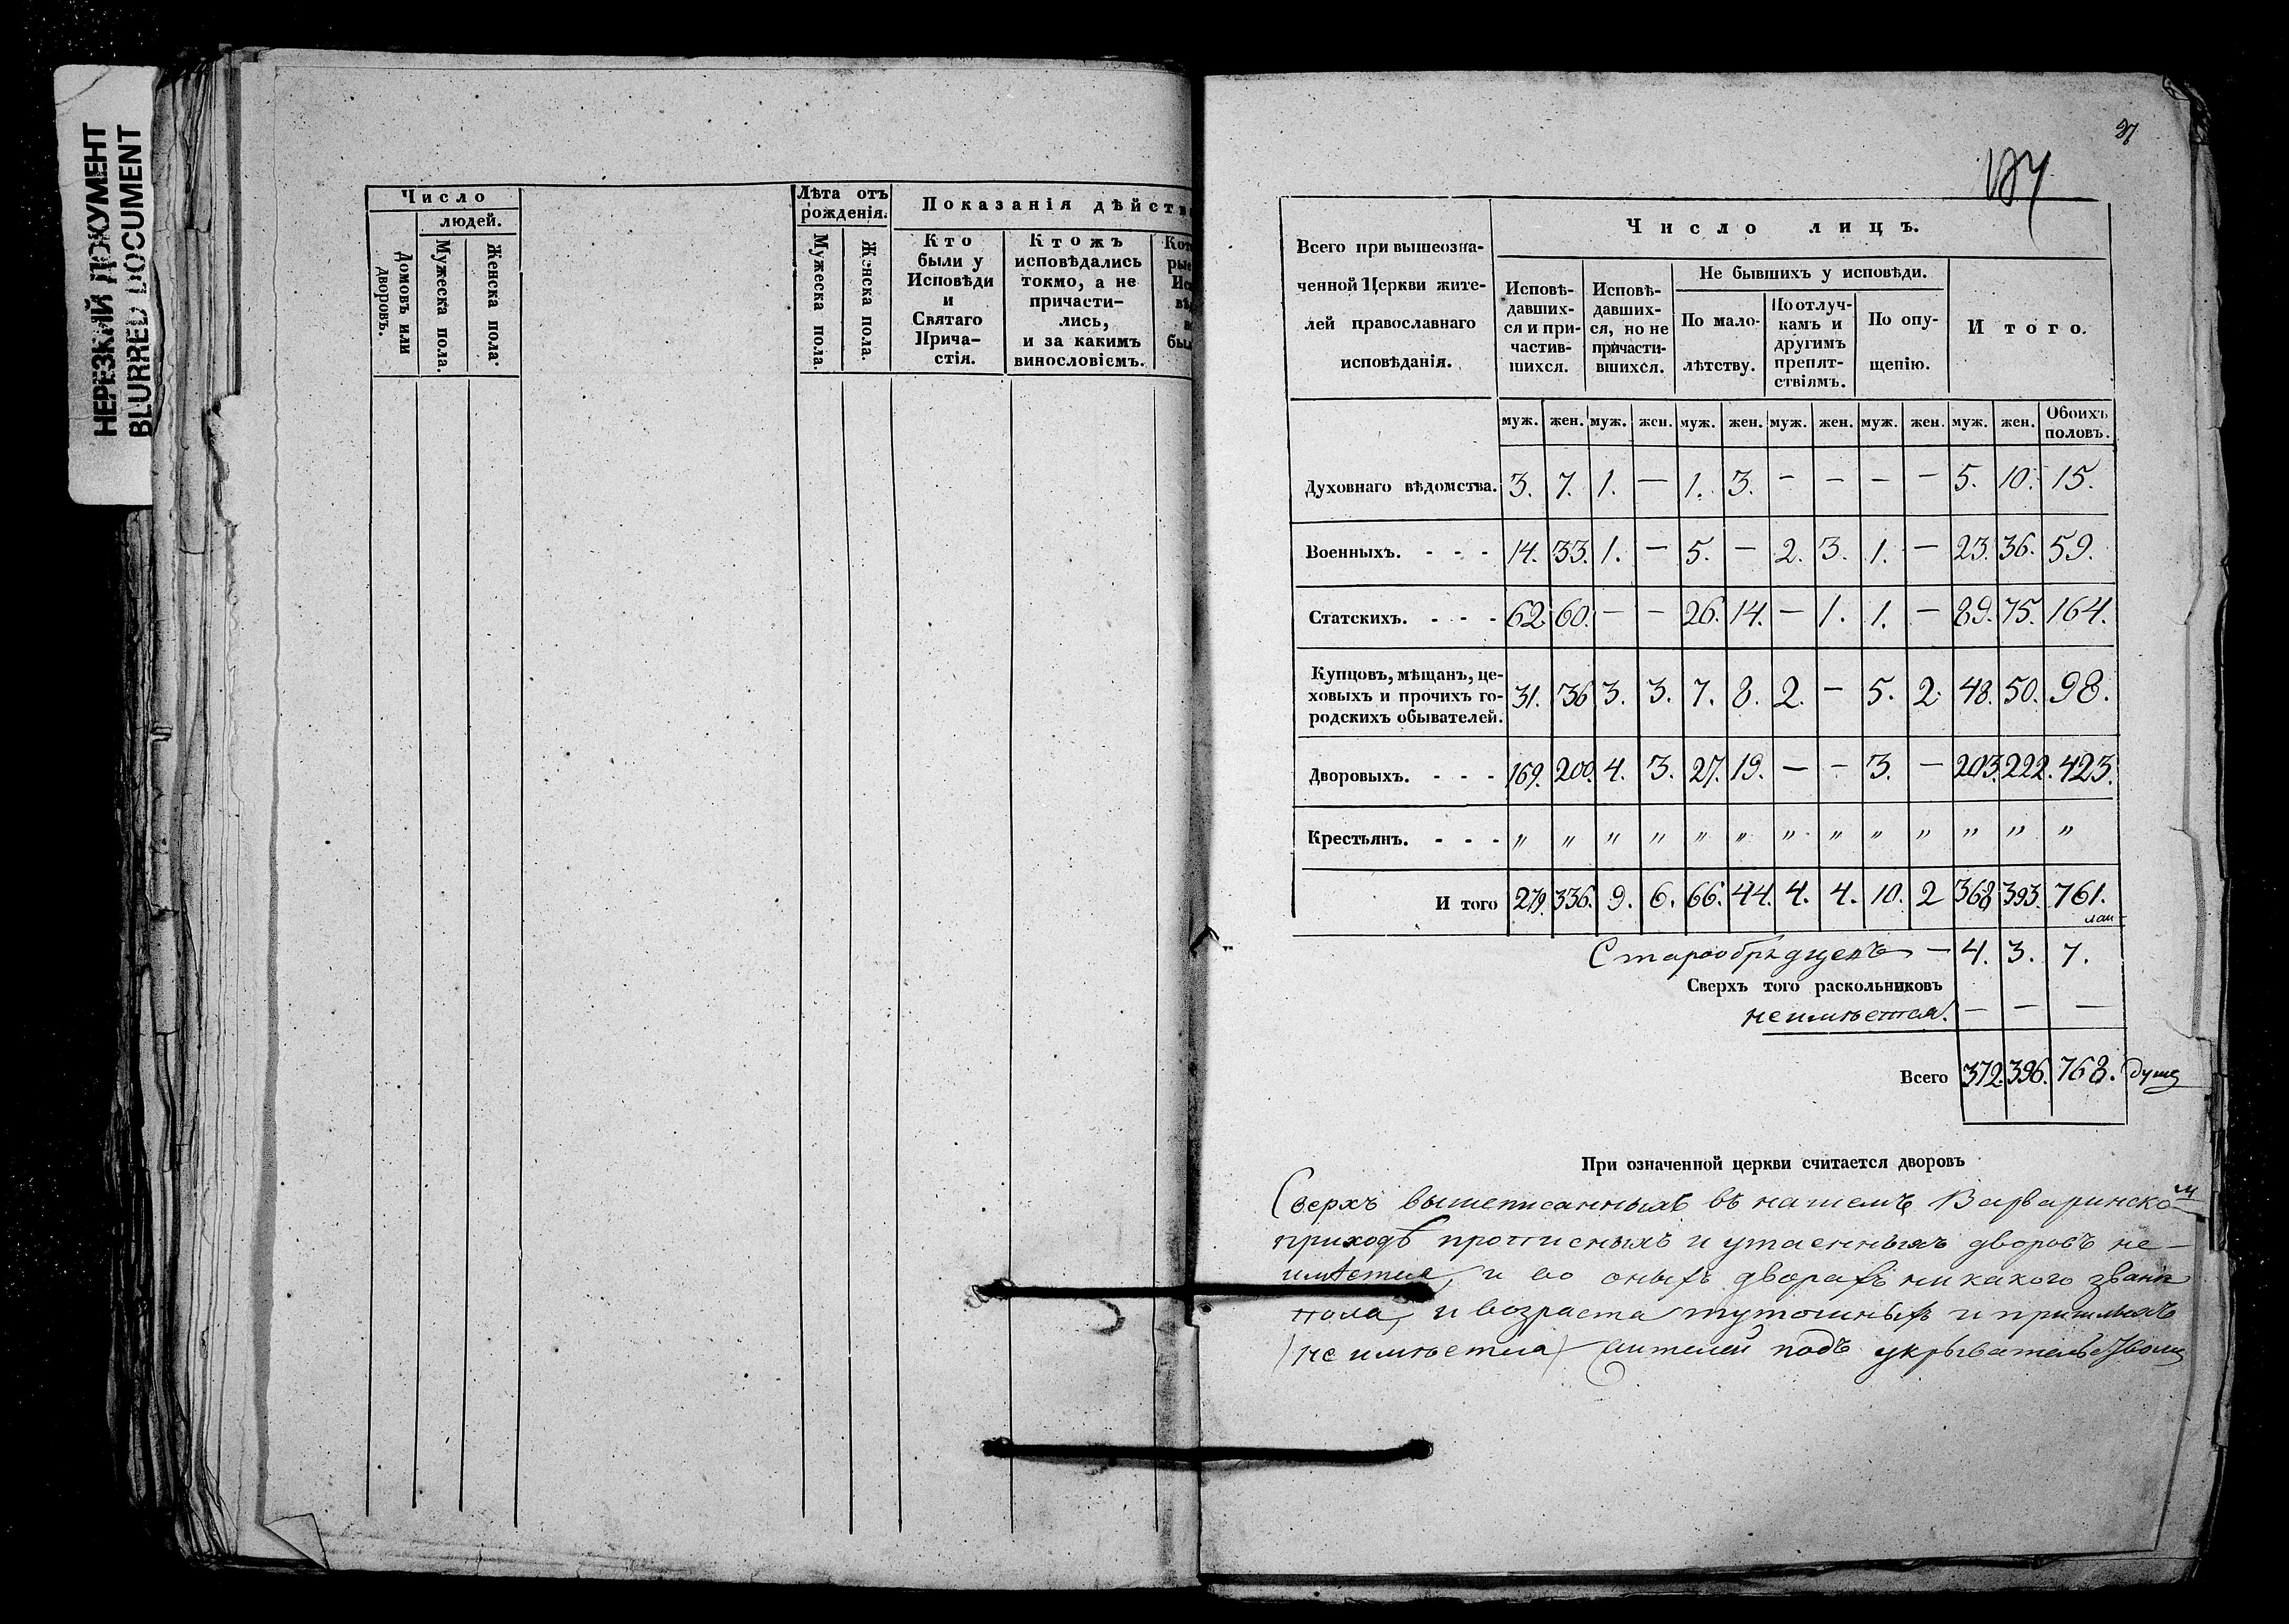 НЕРЕЗКИЙ ДОКУМЕНТ
BLURRED DOCUMENT
Число
людей.
Домовъ или дворовъ.
Мужеска пола.
Женска пола.
Лѣта отъ
рожденія.
Мужеска пола.
Женска пола.
Показанія дѣйств
Кто
были у
Исповѣди
и
Святаго
Прича-
стія.
Ктожъ
исповѣдались
токмо, а не
причасти-
лись,
и за какимъ
винословіемъ.
Всего при вышеозна-
ченной Церкви жите-
лей православнаго
исповѣданія.
Число лицъ.
Исповѣ-
давших-
ся и при-
частив-
шихся.
Исповѣ-
давших-
ся, но не
причасти-
вшихся.
Не бывшихъ у исповѣди.
По мало-
лѣтству.
По отлуч-
камъ и
другимъ
препят-
ствіямъ.
По опу-
щенію.
Итого.
муж. жен. муж. жен. муж. жен. муж. жен. муж. жен. муж. жен. Обоихъ половъ.
Духовнаго вѣдомства. 3. 7. 1. — 1. 3. — — — — 5. 10. 15.
Военныхъ. - - - 14. 33. 1. — 5. — 2. 3. 1. — 23. 36. 59.
Статскихъ. - - - 62 60. — — 26. 14. — 1. 1. — 89. 75. 164.
Купцовъ, мѣщанъ, це-
ховыхъ и прочихъ го-
родскихъ обывателей. 31. 36 3. 3. 7. 8. 2. — 5. 2. 48. 50. 98.
Дворовыхъ. - - - 169. 200. 4. 3. 27. 19. — — 3. — 203. 222. 423.
Крестьянъ. - - - " " " " " " " " " " " " "
И того 279. 336. 9. 6. 66. 44. 4. 4. 10. 2 368 393. 761.
Старообрядцевъ — 4. 3. 7.
Сверхъ того раскольниковъ
неимѣется. — — —
Всего 372. 396. 768. душъ
При означенной церкви считается дворовъ
Сверхъ вышеписанныхъ въ нашемъ Варваринском
приходѣ прописныхъ и утаенныхъ дворовъ не-
имѣется, и во оныхъ дворахъ никакого званія
пола, и возраста тутошныхъ и пришлыхъ
(не имѣется) жителей подъ укрывательством